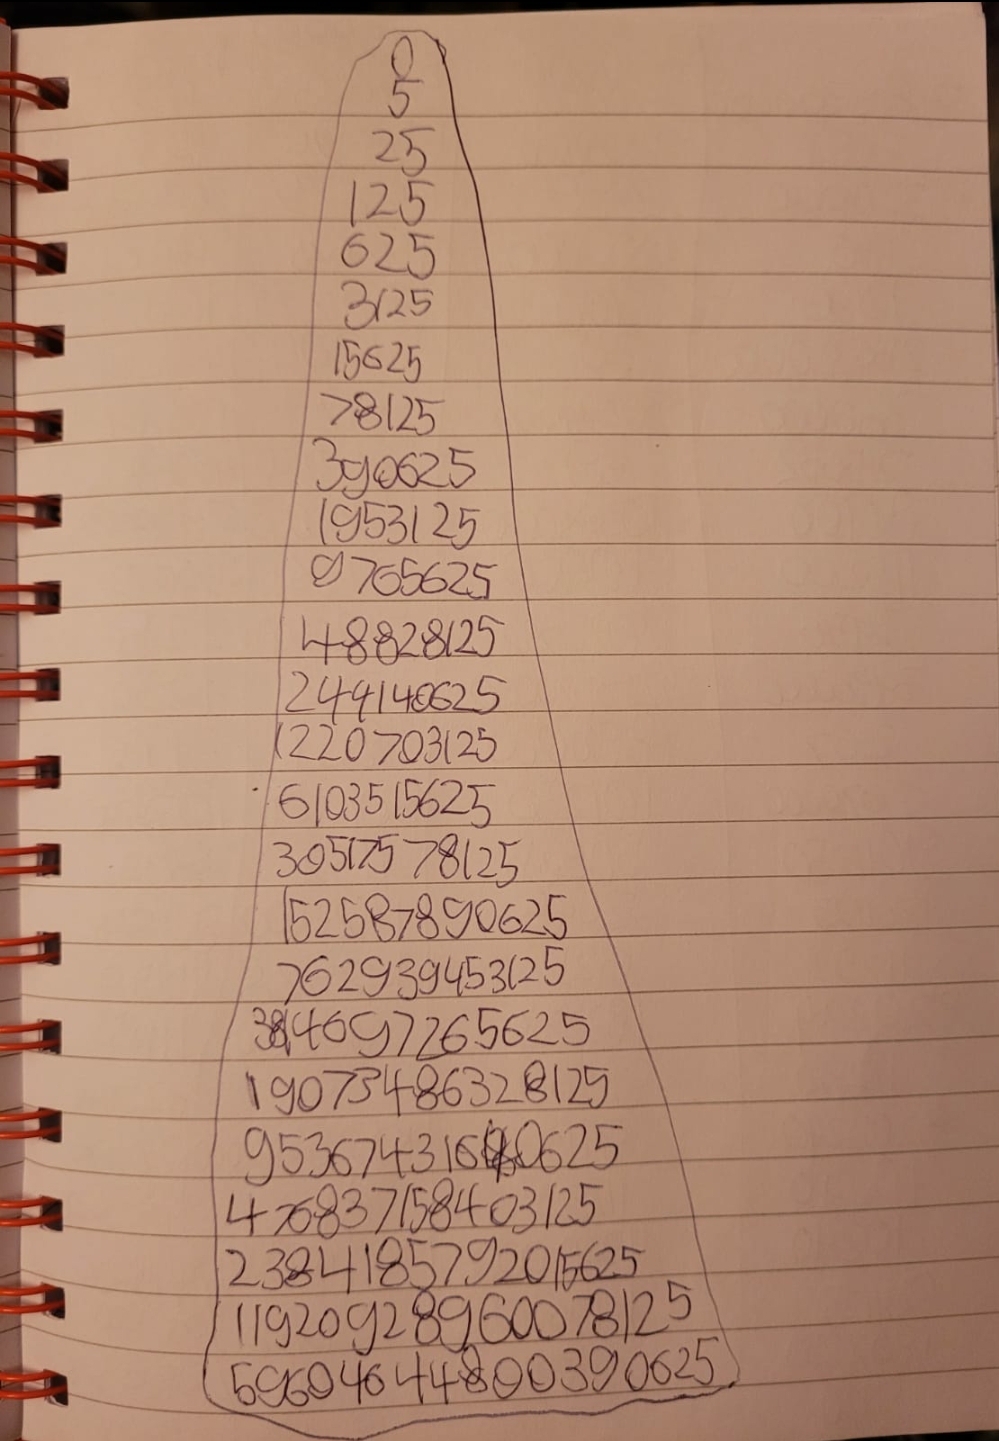 0
5
25
125
625
3125
15625
78125
390625
1953125
9765625
48828125
244140625
1220703125
6103515625
30517578125
152587890625
762939453125
3814697265625
19073486328125
95367431680625
476837158403125
2384185792015625
11920928960078125
59604644800390625